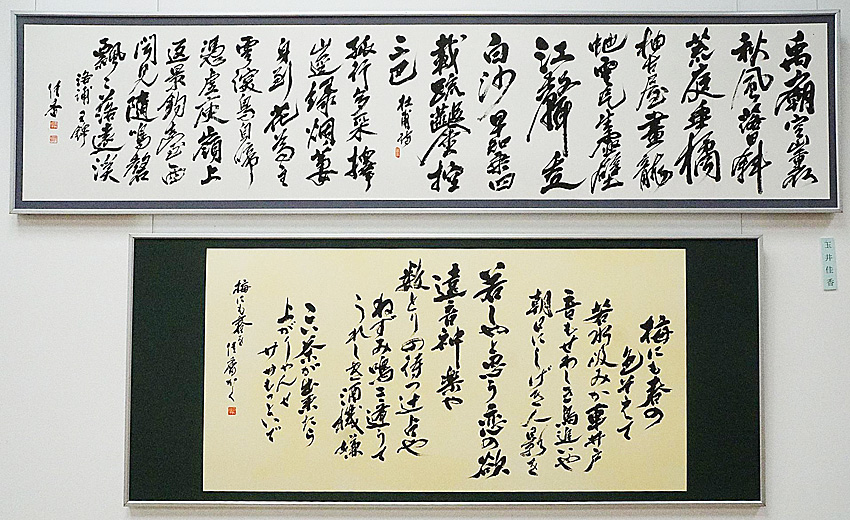 禹廟空山裏
秋風落日斜
荒庭垂橘
柚古屋畫龍
蛇雲気生虚壁
江聲走
白沙早知乘四
載疏鑿控
三巴 杜甫詩
孤行多采擇
山邃緑烟萋
身到花為主
雲深鳥自啼
憑虚度嶺上
返景釣臺西
聞見隨鳴磬
飄々落遠溪
王鐸
佳香
玉井佳香
梅にも春の
色そえて
若水汲みか車井戸
音もせわしき鳥追いや
朝日にしげき人影を
若しやと思う恋の欲
遠音神楽や
数とりの待つ辻占や
ねずみ鳴き
うれしき酒機嫌
こい茶が出来たら
上がりゃんせ
ササもっといで
梅にも春を 佳香かく